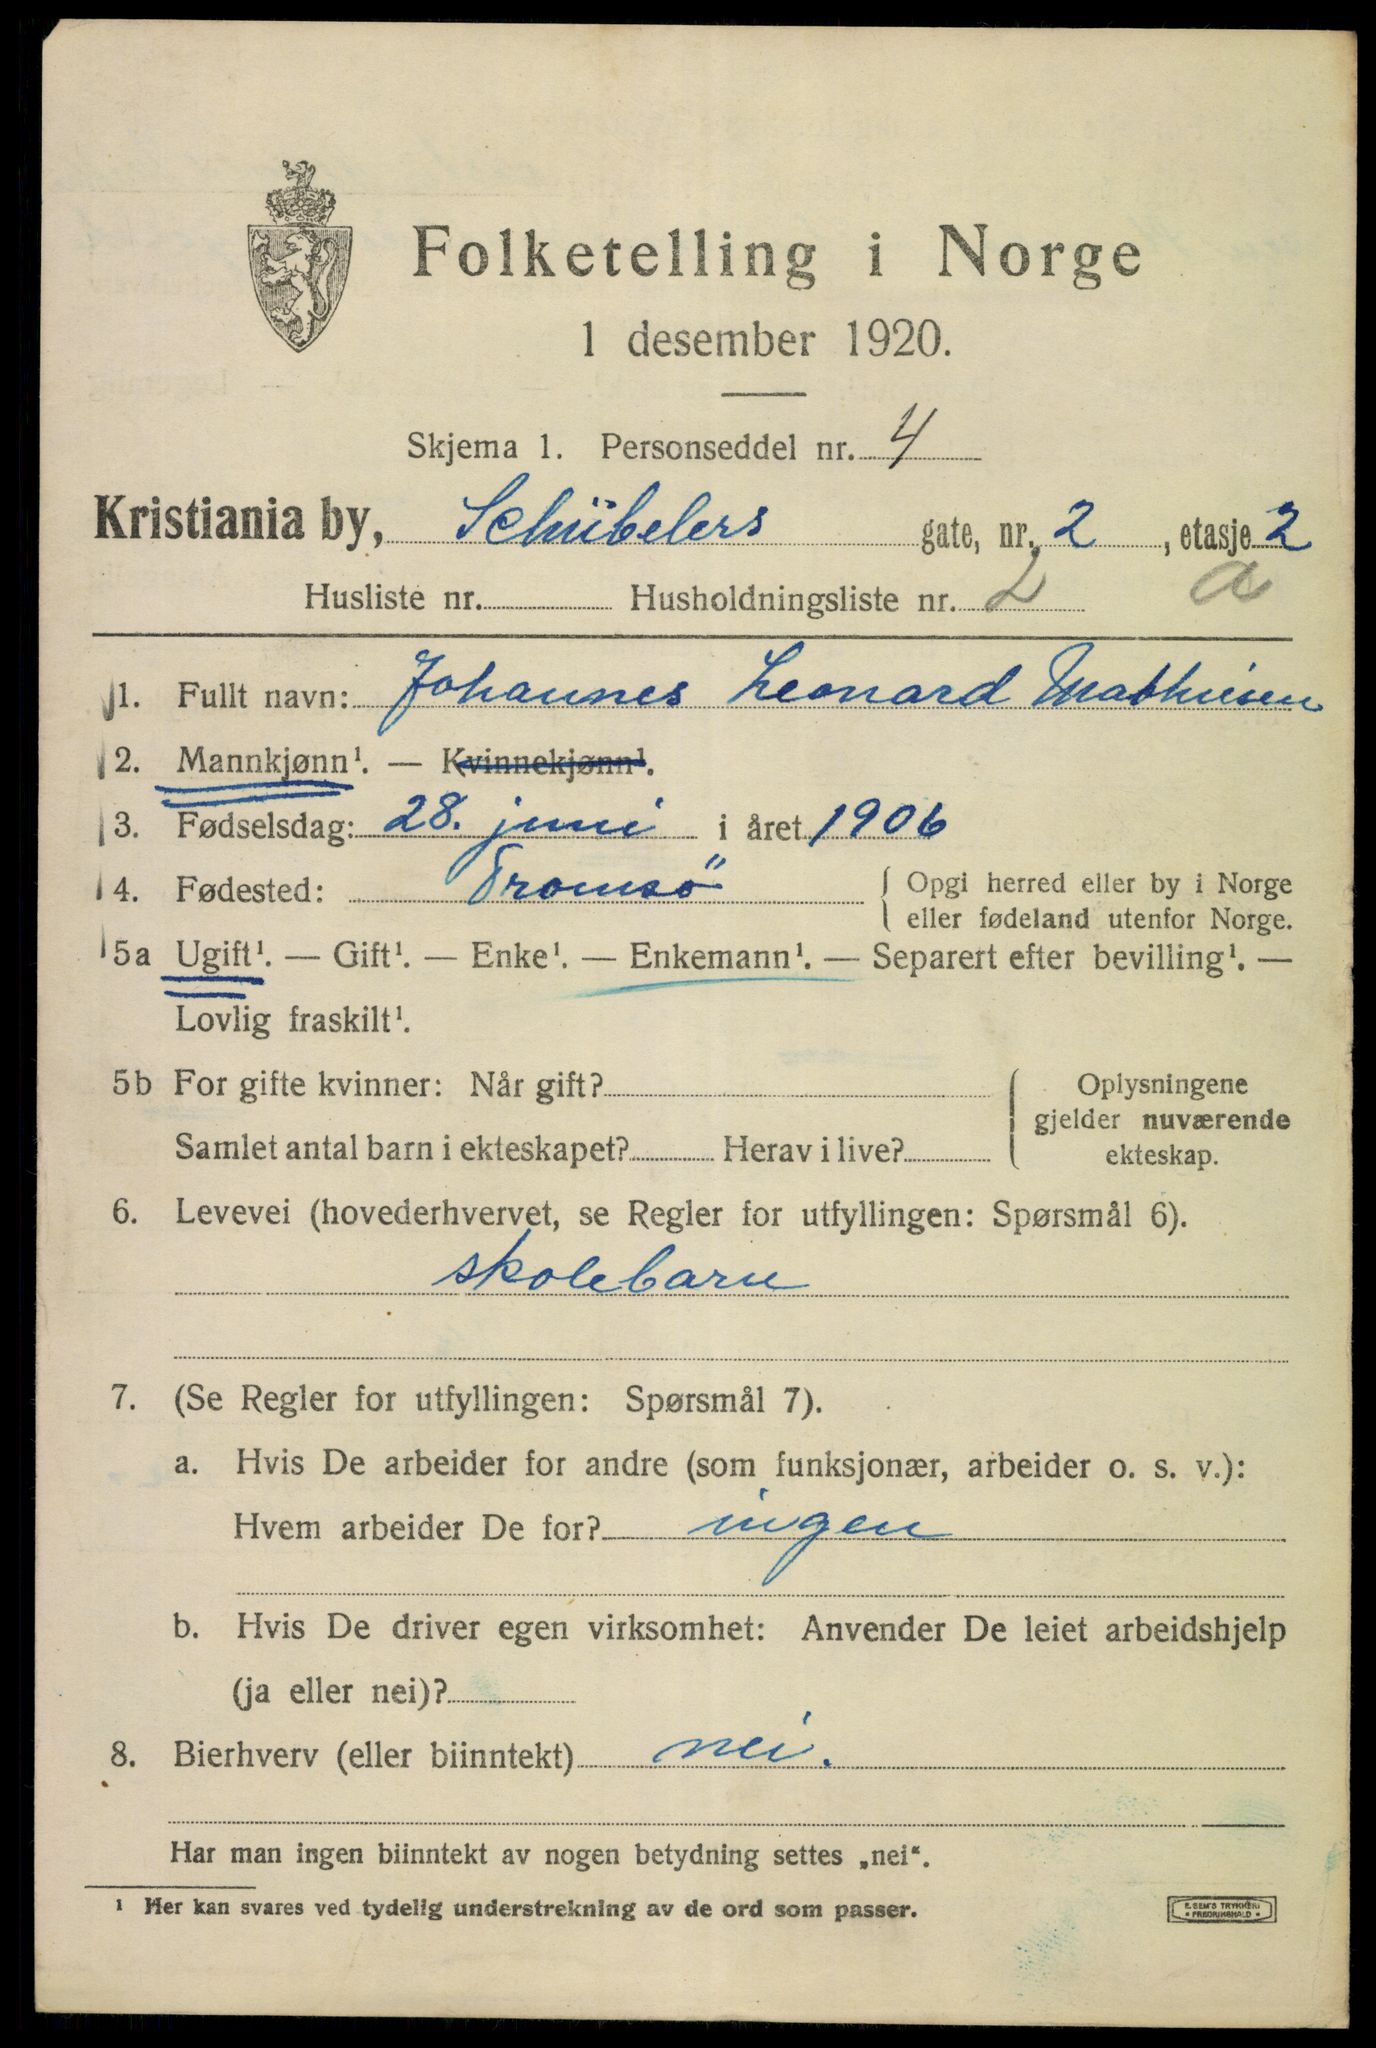 Folketelling i Norge
1 desember 1920.
Skjema 1. Personseddel nr. 4
Kristiania by, Schübelers gate, nr. 2, etasje 2
Husliste nr. Husholdningsliste nr. 2 a
1. Fullt navn: Johannes Leonard Mathiesen
2. Mannkjønn¹. — Kvinnekjønn¹.
3. Fødselsdag: 28. juni i året 1906
4. Fødested: Tromsö { Opgi herred eller by i Norge
eller fødeland utenfor Norge.
5a Ugift¹. — Gift¹. — Enke¹. — Enkemann¹. — Separert efter bevilling¹. —
Lovlig fraskilt¹.
5b For gifte kvinner: Når gift?
Samlet antal barn i ekteskapet? Herav i live?
Oplysningene
gjelder nuværende
ekteskap.
6. Levevei (hovederhvervet, se Regler for utfyllingen: Spørsmål 6).
skolebarn
7. (Se Regler for utfyllingen: Spørsmål 7).
a. Hvis De arbeider for andre (som funksjonær, arbeider o. s. v.):
Hvem arbeider De for? ingen
b. Hvis De driver egen virksomhet: Anvender De leiet arbeidshjelp
(ja eller nei)?
8. Bierhverv (eller biinntekt) nei.
Har man ingen biinntekt av nogen betydning settes „nei“.
¹ Her kan svares ved tydelig understrekning av de ord som passer.
E. SEM'S TRYKKERI
• FREDRIKSHALD •